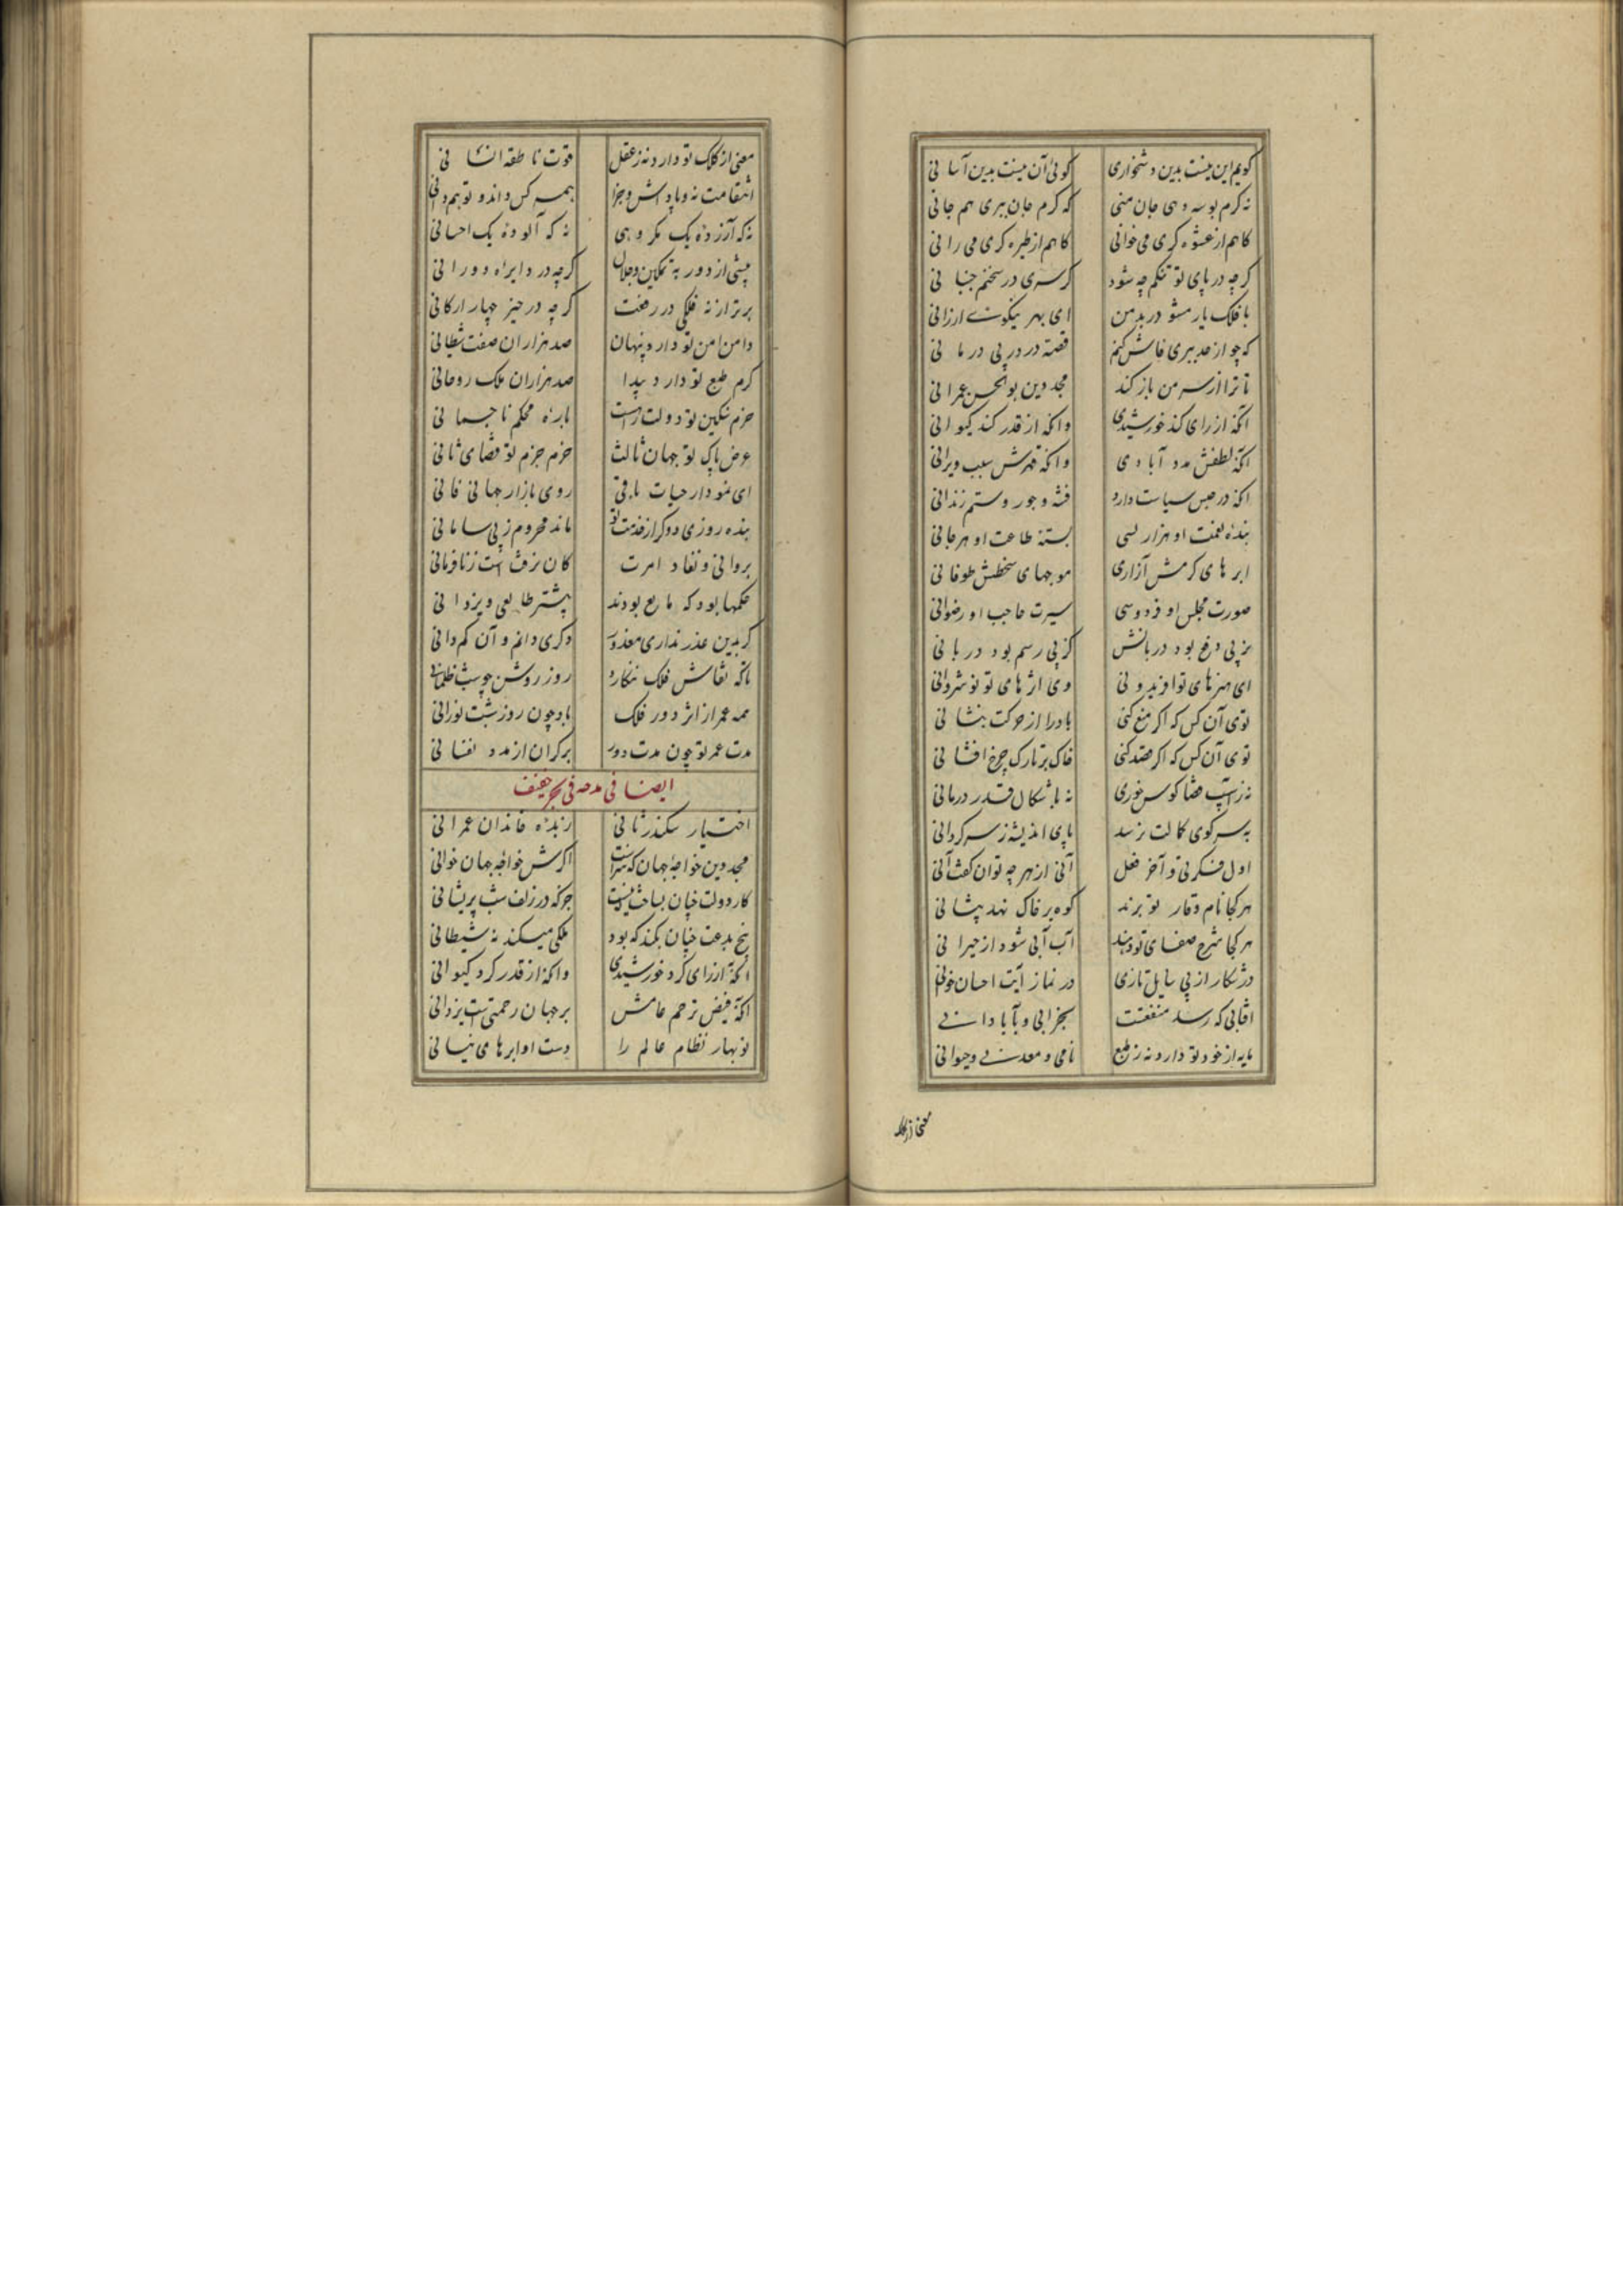 کویم این نیست بدین دشخواری کوئی آن نیست بدین آسانی
نه کرم بوسه دهی جان منی که کرم جان ببری هم جانی
کاهم از عشوه کری می خوانی کاهم از طیره کری می رانی
کرچه در پای تو تنکم چه شود کر سری در سخنم جنبانی
با فلک یار مشو در بد من ای بهر نیکوئی ارزانی
که چو از حد ببری فاش کنم قصه درد ز بی درمانی
تا ترا از سر من باز کند مجد دین بوالحسن عمرانی
آنکه از رای کند خورشیدی وانکه از قدر کند کیوانی
آنکه لطفش مدد آبادی وانکه قهرش سبب ویرانی
آنکه در حبس سیاست دارد فتنه و جور و ستم زندانی
بنده نعمت او هزار لسی بسته طاعت او هر جانی
ابرهای کرمش آزاری موجهای سخطش طوفانی
صورت مجلس او فردوسی سیرت حاجب او رضوانی
نز پی دفع بود دربانش کز پی رسم بود دربانی
ای هنرهای تو افریدونی وی اثرهای تو نوشروانی
توی آن کس که اکر منع کنی باد را از حرکت بنشانی
توی آن کس که اکر قصد کنی خاک بر تارک چرخ افشانی
نه ز آسیب قضا کوس خوری نه باشکال قدر درمانی
به سر کوی کمالت نرسد پای اندیشه ز سرکردانی
اول فکرتی و آخر فعل آنی از هر چه توان کفت آنی
هر کجا نام وقار تو برند کوه بر خاک نهد پیشانی
هر کجا شرح صفای تو دهند آب آبی شود از حیرانی
در شکار از پی سایل تازی در نماز آیت احسان خوانی
آفتابی که رسد منفعتت بخرابی و بآبادانی
مایه از خود تو دارد نه ز طبع نامی و معدنی و حیوانی
معنی از کلک
معنی از کلک تو دارد نه ز عقل قوت ناطقه انسانی
انتقامت نه و پاداش و جزا همه کس داند و تو هم دانی
نه که آزرده یک مکروهی نه که آلوده یک احسانی
پیشی از دور به تمکین و جلال کرچه در دایراه دورانی
برتر از نه فلکی در رفعت کرچه در حیز چهار ارکانی
دامن امن تو دارد پنهان صد هزاران صفت شیطانی
کرم طبع تو دارد پیدا صد هزاران ملک روحانی
حزم سنکین تو دولت راست باره محکم ناجسمانی
عرض پاک تو جهان ثالث حزم جزم تو قضای ثانی
ای نمودار حیات باقی روی بازار جهانی فانی
بنده روزی دو کر از خدمت تو ماند محروم ز بی سامانی
بروانی و نفاد امرت کان نرفتست ز نافرمانی
حکمها بود که مانع بودند پیشتر طالعی و یزدانی
کر بدین عذر نداری معذور دکری دانم و آن کم دانی
تا که نقاش فلک ننکارد روز روشن چو شب ظلمانی
همه عمر از اثر دور فلک باد چون روز شبت نورانی
مدت عمر تو چون مدت دور بر کران از مدد نقصانی
ایضا فی مدحه فی بحر خفیف
اختیار سکندر ثانی زبده خاندان عمرانی
مجد دین خواجه جهان که سزاست اکرش خواجه جهان خوانی
کار دولت چنان بساخت که نیست جز که در زلف شب پریشانی
بیخ بدعت چنان بکند که بود ملکی میکند نه شیطانی
آنکه از رای کرد خورشیدی وانکه از قدر کرد کیوانی
آنکه فیض ترحم عامش بر جهان رحمتیست یزدانی
نوبهار نظام عالم را دست او ابرهای نیسانی